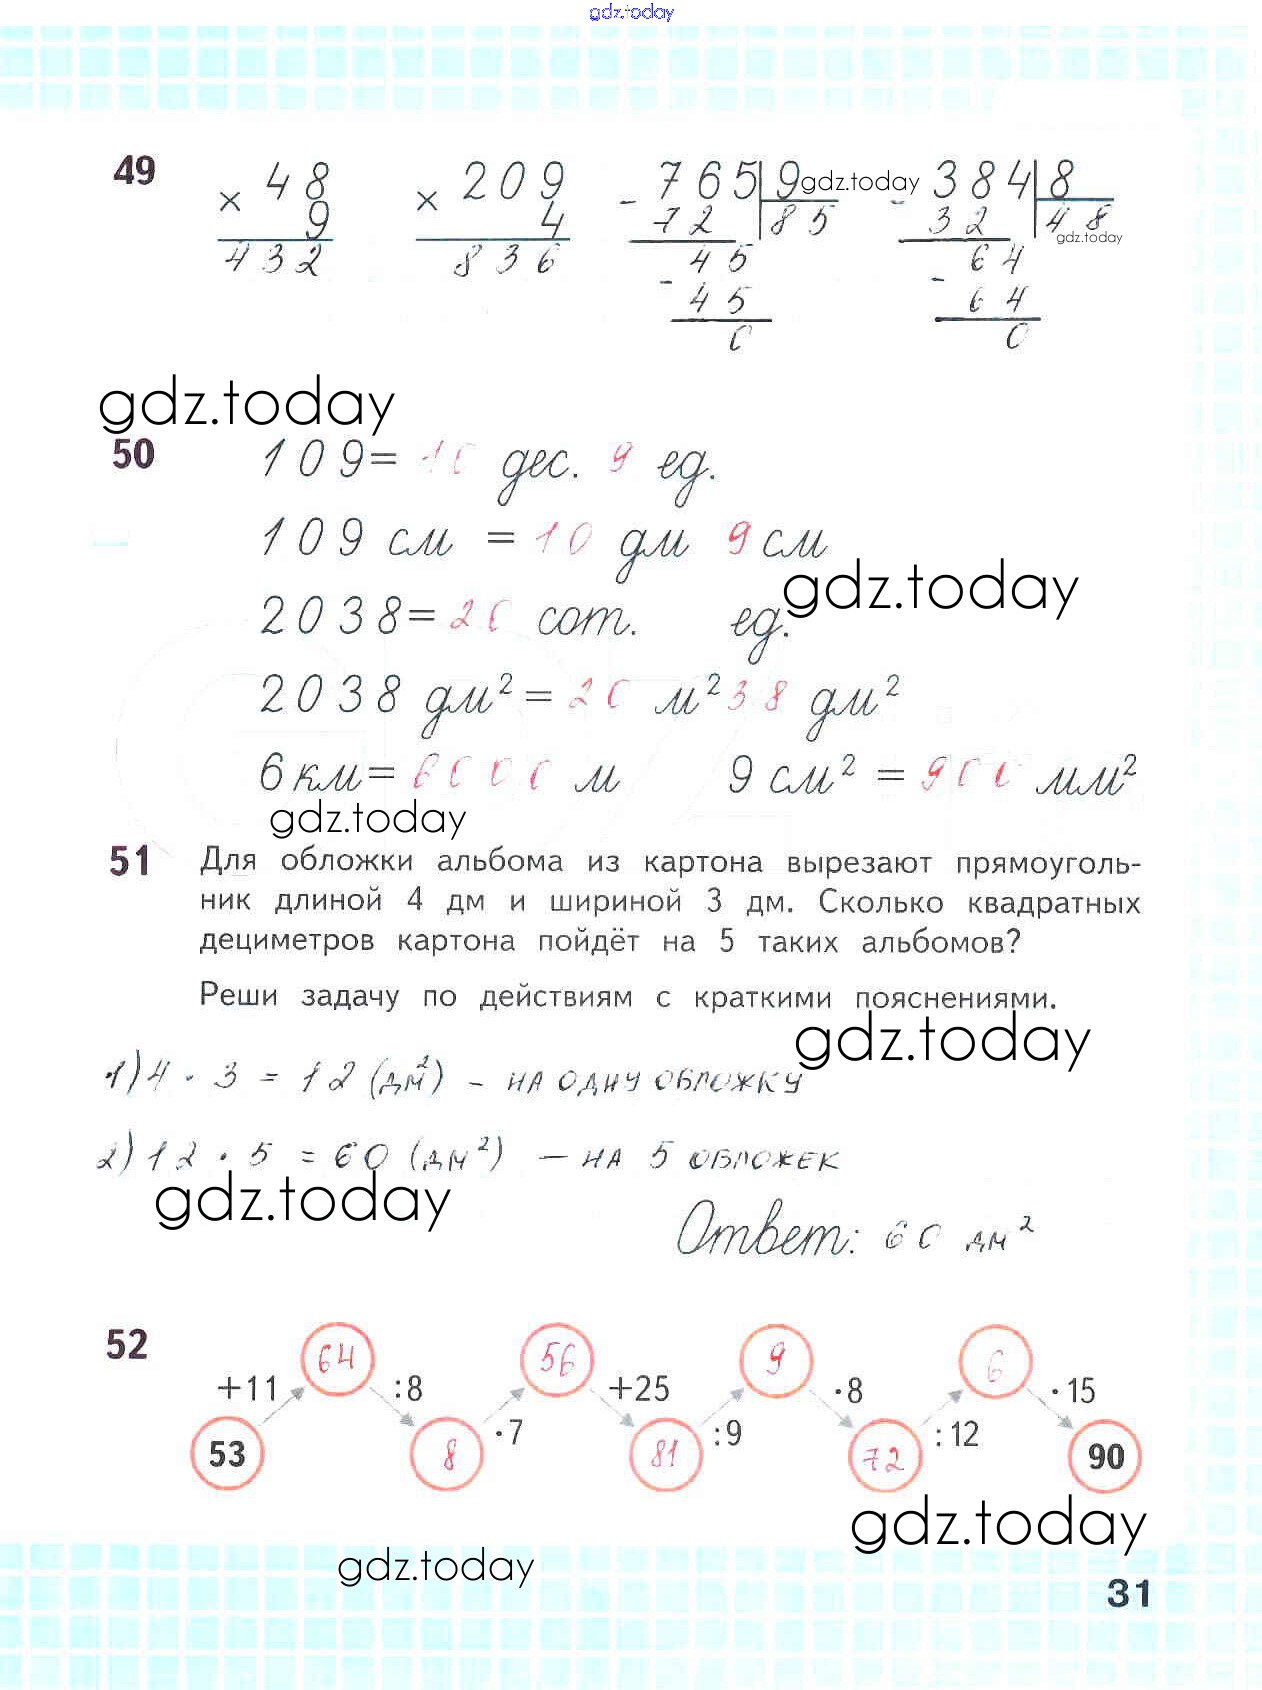 gdz.today
49
× 48 × 209 - 765 9 gdz.today - 384 8
9 4 72 85 32 48
gdz.today
432 836 45 64
- 45 - 64
0 0
gdz.today
50 109= 10 дес. 9 ед.
109 см = 10 дм 9 см
gdz.today
2038= 20 сот. ед.
2038 дм² = 20 м² 38 дм²
6 км= 6000 м 9 см² = 900 мм²
gdz.today
51 Для обложки альбома из картона вырезают прямоуголь-
ник длиной 4 дм и шириной 3 дм. Сколько квадратных
дециметров картона пойдёт на 5 таких альбомов?
Реши задачу по действиям с краткими пояснениями.
gdz.today
1) 4 · 3 = 12 (дм²) - на одну обложку
2) 12 · 5 = 60 (дм²) - на 5 обложек
gdz.today
Ответ: 60 дм²
52 64 56 9 6
+11 :8 +25 ·8 ·15
·7 :9 :12
53 8 81 72 90
gdz.today
gdz.today
31